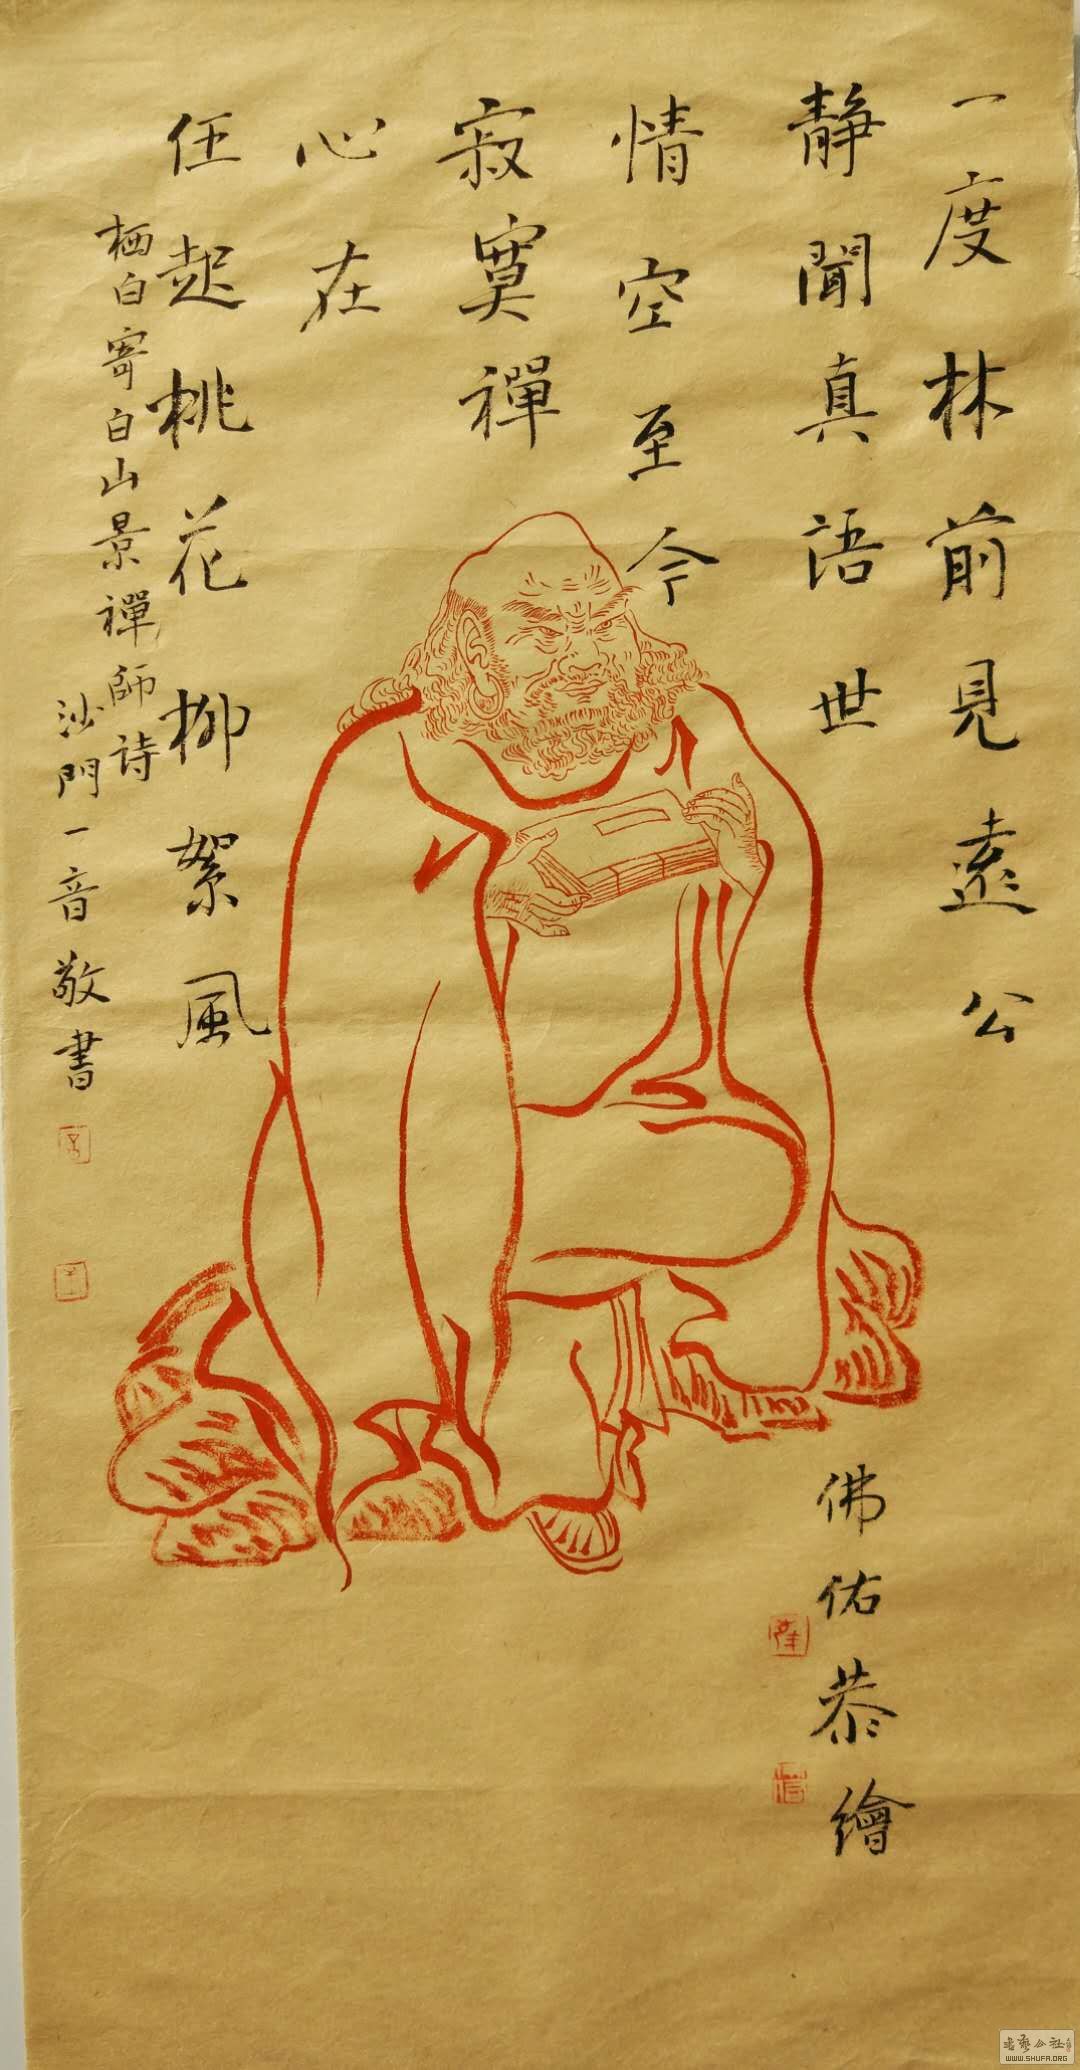 一度林前見遠公
靜聞真語世
情空至今
寂寞禪
心在
任起桃花柳絮風
栖白寄白山景禪師詩
沙門一音敬書
佛佑恭繪
WWW.SHUFA.ORG